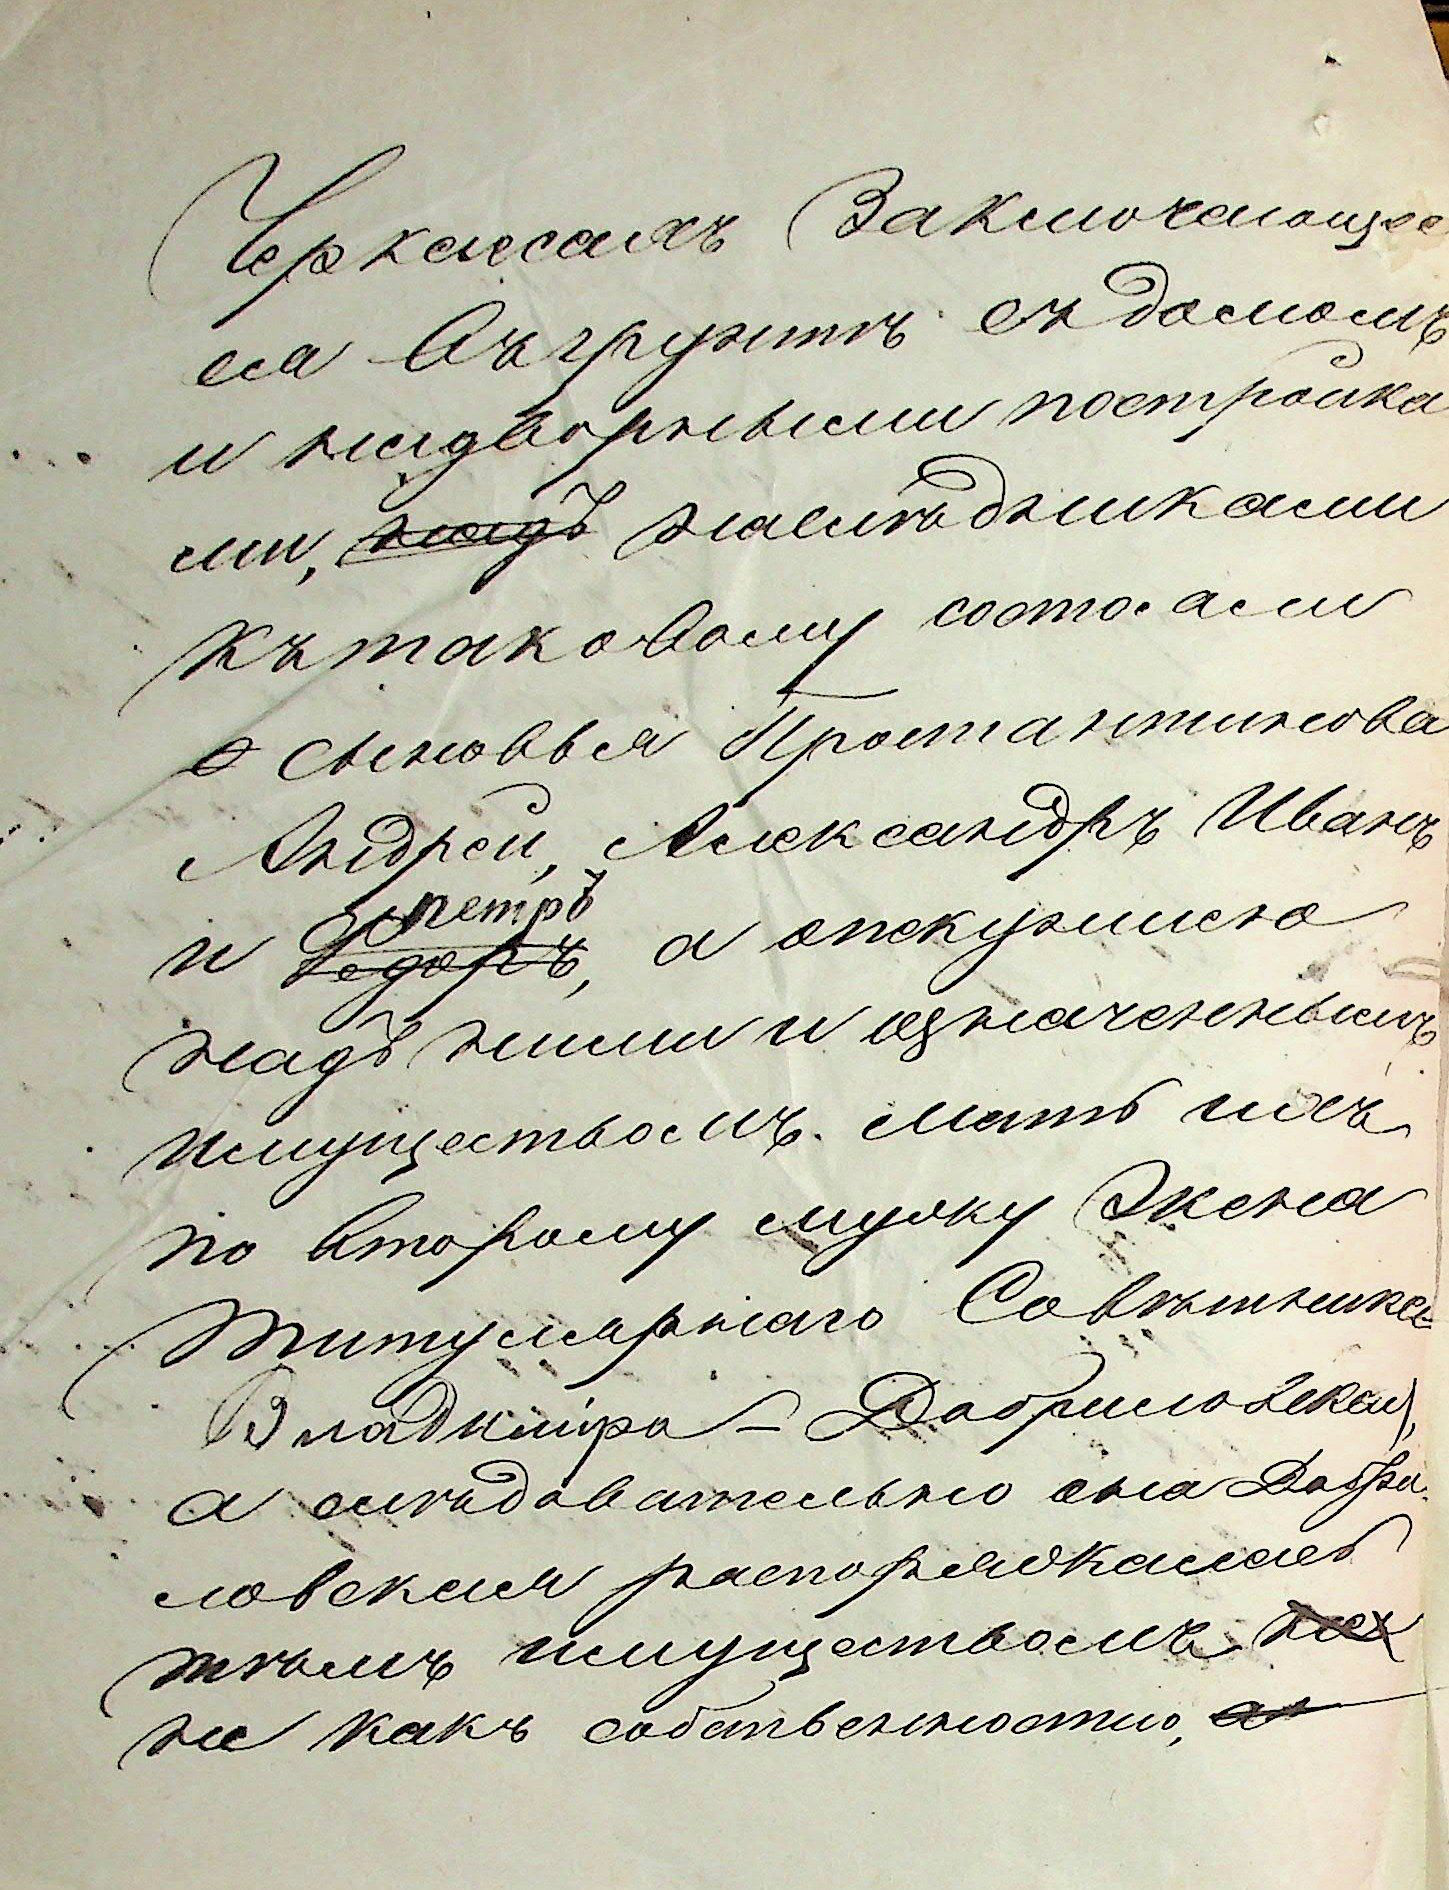 Черкассахъ Заключающее
ся въ грунтѣ съ домомъ
и надворными постройка
ми, надъ наслѣдниками
къ таковому состоами
сыновья Простантинова
Андрей, Александръ Иванъ
петръ
и Федоръ, а опекуншею
надъ ними и означеннымъ
имуществомъ мать ихъ
по второму мужу жена
титулярнаго Совѣтника
Владиміра - Добриловская,
а слѣдовательно она Добри-
ловская распоряжалась
тѣмъ имуществомъ не
не какъ собственностью, а